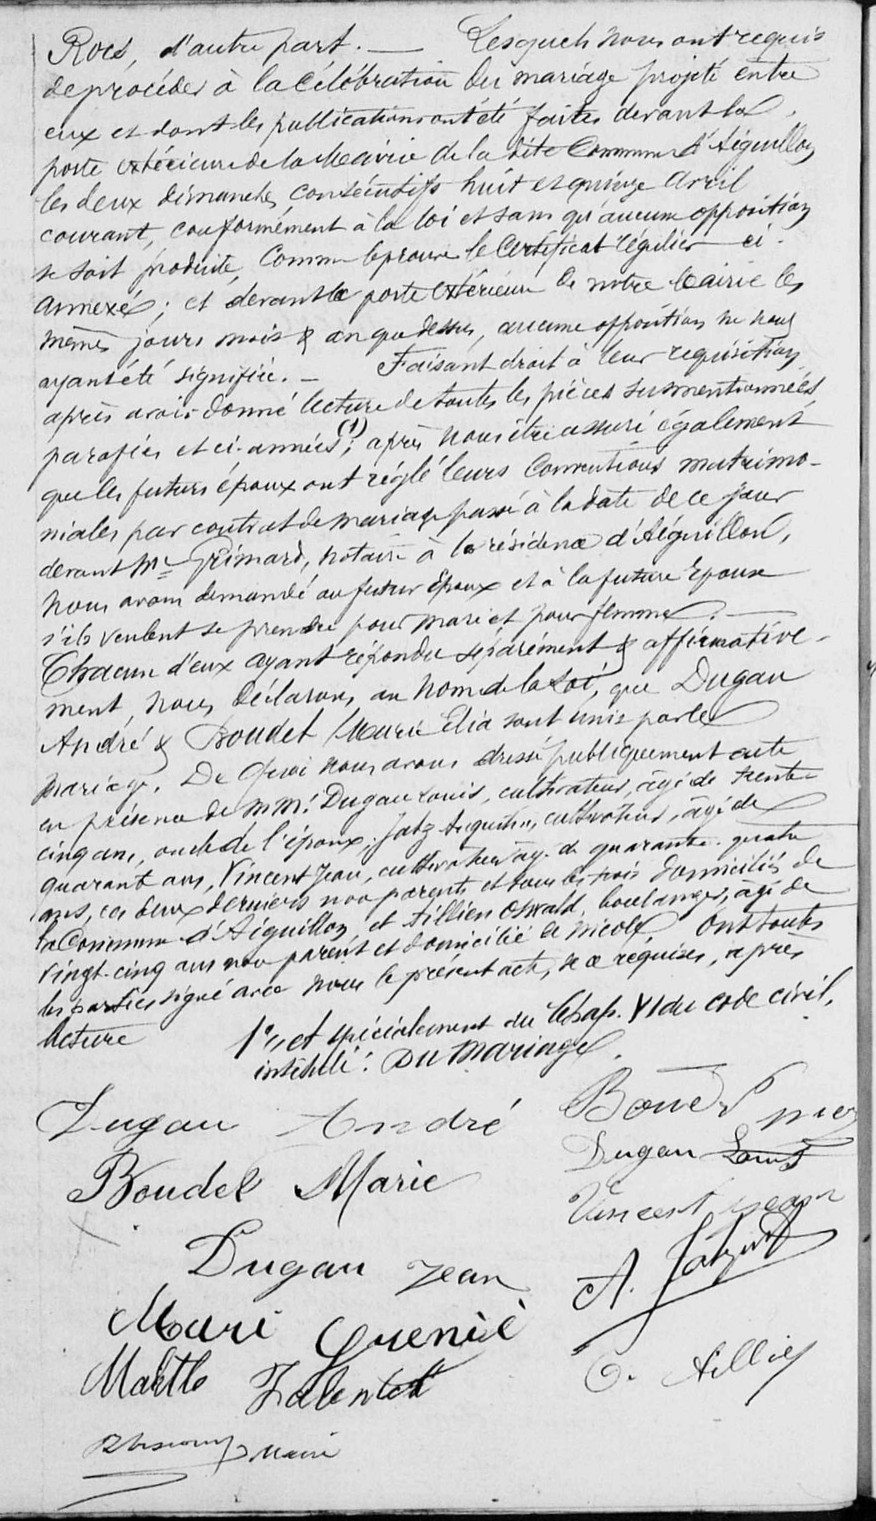 Rocs, d'autre part. — Lesquels nous ont requis
de procéder à la célébration du mariage projeté entre
eux et dont les publications ont été faites devant la
porte extérieure de la Mairie de la dite Commune d'Aiguillon
les deux dimanches consécutifs huit et quinze avril
courant, conformément à la loi et sans qu'aucune opposition
se soit produite, comme le prouve le Certificat régulier ci-
annexé ; et devant la porte extérieure de notre Mairie les
mêmes jours mois & an que dessus, aucune opposition ne nous
ayant été signifiée. — Faisant droit à leur requisition
après avoir donné lecture de toutes les pièces susmentionnées
parafées et ci-annéés (1) ; après nous être assuré également
que les futurs époux ont réglé leurs Conventions matrimo-
niales par contrat de mariage passé à la date de ce jour
devant Me Grimard, notaire à la résidence d'Aiguillon,
nous avons demandé au futur Époux et à la future Épouse
s'ils veulent se prendre pour mari et pour femme. —
Chacun d'eux ayant répondu séparément & affirmative-
ment, nous déclarons, au nom de la Loi, que Dugau
André & Boudet Marie Elia sont unis par le
mariage. De quoi nous avons dressé publiquement acte
en présence de MM. Dugau Louis, cultivateur, âgé de trente-
cinq ans, oncle de l'époux ; Jatz Augustin, cultivateur, âgé de
quarant ans, Vincent Jean, cultivateur ag. de quarante-quatre
ans, ces deux derniers non parents et tous les trois domiciliés de
la Commune d'Aiguillon et Tillien Oswald, boulanger, agé de
vingt-cinq ans non parent et domicilié de Nicole Ont toutes
les parties signé avec nous le présent acte, de ce réquises, après
lecture 1° et spécialement du Chap. VI du code civil,
intitulé : Du Mariage.
Dugau André
Boudet Marie
Dugau Louis
Vincent Jean
Dugau Jean
Mari
Marthe
Maire